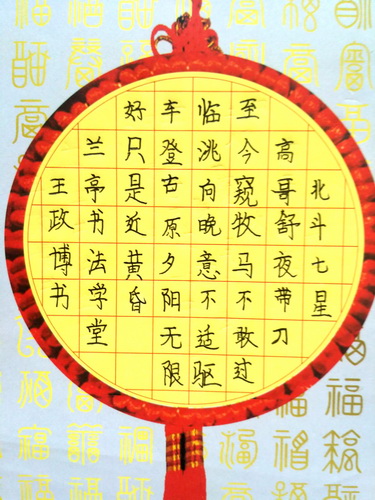 北斗七星
高哥舒夜带刀
至今窥牧马不敢过
临洮向晚意不适驱
车登古原夕阳无限
好只是近黄昏
兰亭书法学堂
王政博书